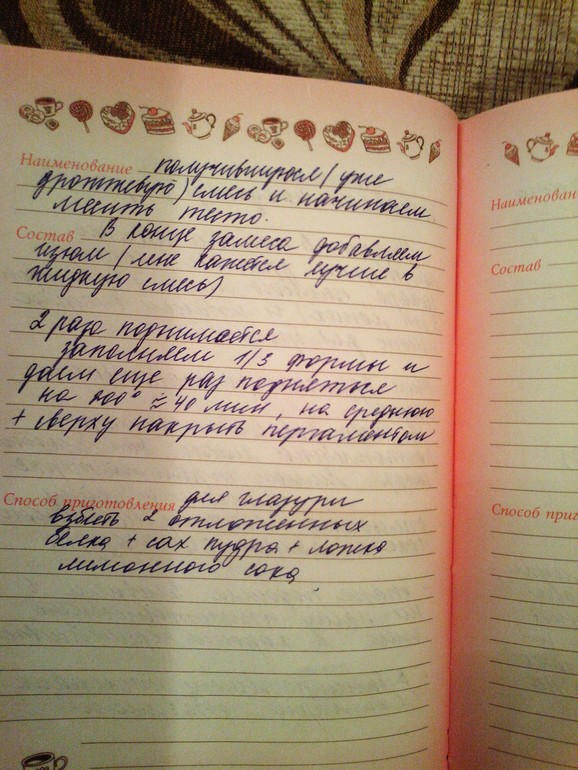 Наименование получившуюся (уже
дрожжевую) смесь и начинаем
месить тесто.
Состав В конце замеса добавляем
изюм (мне кажется лучше в
жидкую смесь)
2 раза поднимается
заполняем 1/3 формы и
даем еще раз подняться
на 200° ≈ 40 мин, на среднюю
+ сверху накрыть пергаментом
Способ приготовления для глазури
взбить 2 отложенных
белка + сах пудра + ложка
лимонного сока
Наименован
Состав
Способ приг